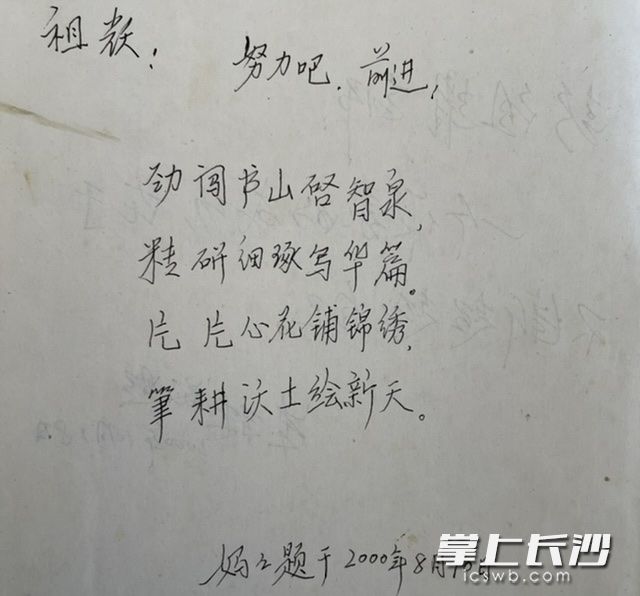 祖
努力吧,前进!
劲闯书山启智泉,
精研细琢写华篇。
片片心花铺锦绣,
筆耕沃土绘新天。
妈妈题于2000年8月
掌上长沙
icswb.com